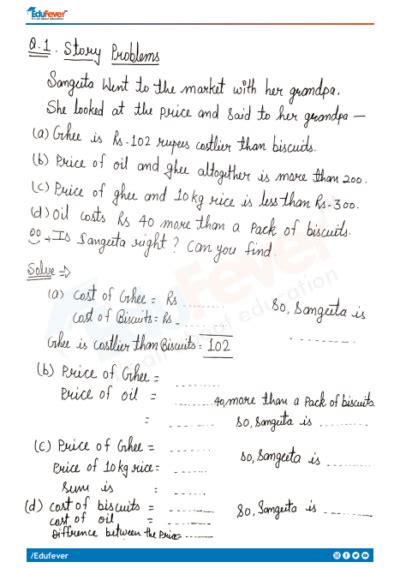 EduFever
Q.1. Story Problems
Sangeeta Went to the market with her grandpa.
She looked at the price and said to her grandpa —
(a) Ghee is Rs-102 rupees costlier than biscuits.
(b) Price of oil and ghee altogether is more than 200.
(c) Price of ghee and 10kg rice is less than Rs-300.
(d) Oil costs Rs 40 more than a pack of biscuits.
Is Sangeeta right? Can you find.
Solve ⇒
(a) cost of Ghee = Rs ........
cost of Biscuits = Rs- ........ So, Sangeeta is ..........
Ghee is costlier than Biscuits = 102
(b) Price of Ghee = ........
Price of oil = ........ 40, more than a Pack of biscuits
= ........ So, Sangeeta is ........
(c) Price of Ghee = ........
Price of 10kg rice = ........ So, Sangeeta is ........
Sum is : ........
(d) cost of biscuits = ........ So, Sangeeta is ........
cost of oil = ........
Difference between the Price= ........
/Edufever